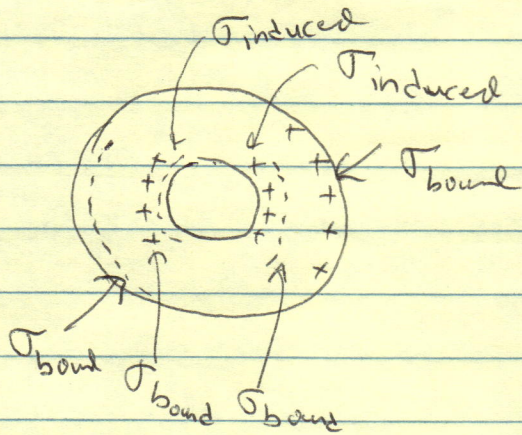 σinduced
σinduced
σbound
σbound
σbound
σbound